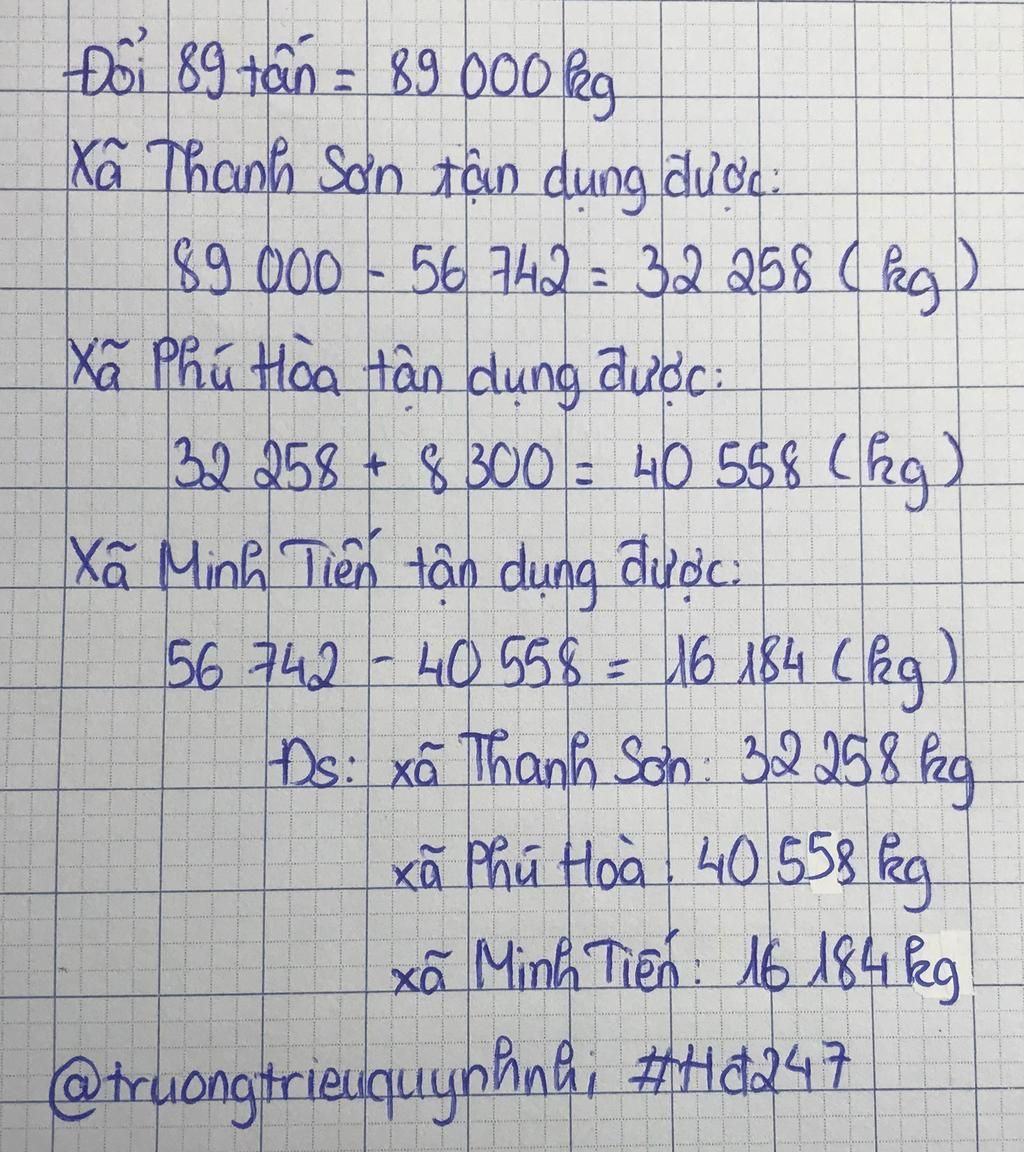 Đổi 89 tấn = 89 000 kg
Xã Thanh Sơn tận dụng được:
89 000 - 56 742 = 32 258 (kg)
Xã Phú Hòa tận dụng được:
32 258 + 8 300 = 40 558 (kg)
Xã Minh Tiến tận dụng được:
56 742 - 40 558 = 16 184 (kg)
Đs: xã Thanh Sơn: 32 258 kg
xã Phú Hoà: 40 558 kg
xã Minh Tiến: 16 184 kg
@truongtrieuquynhnhi #Hđ247